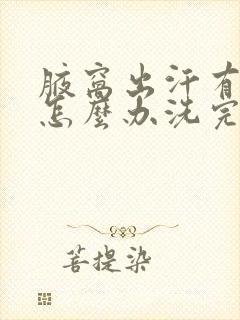 腋窩出汗有
怎麼办洗完
菩提染